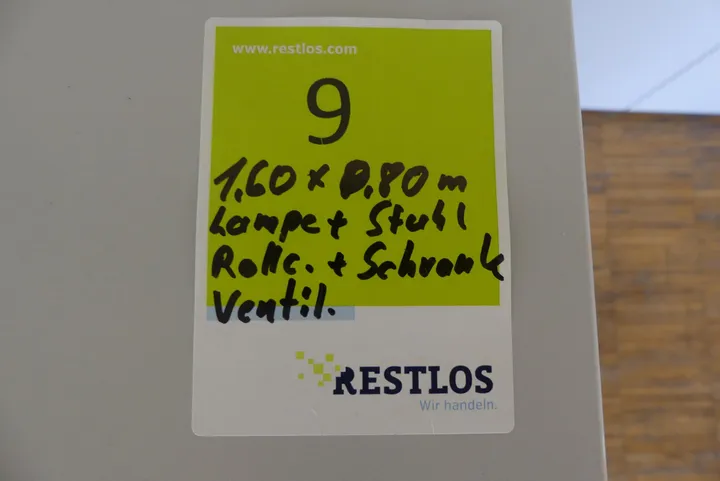 www.restlos.com
9
1,60 x 0,80 m
Lampe + Stuhl
Rollc. + Schrank
Ventil.
RESTLOS
Wir handeln.